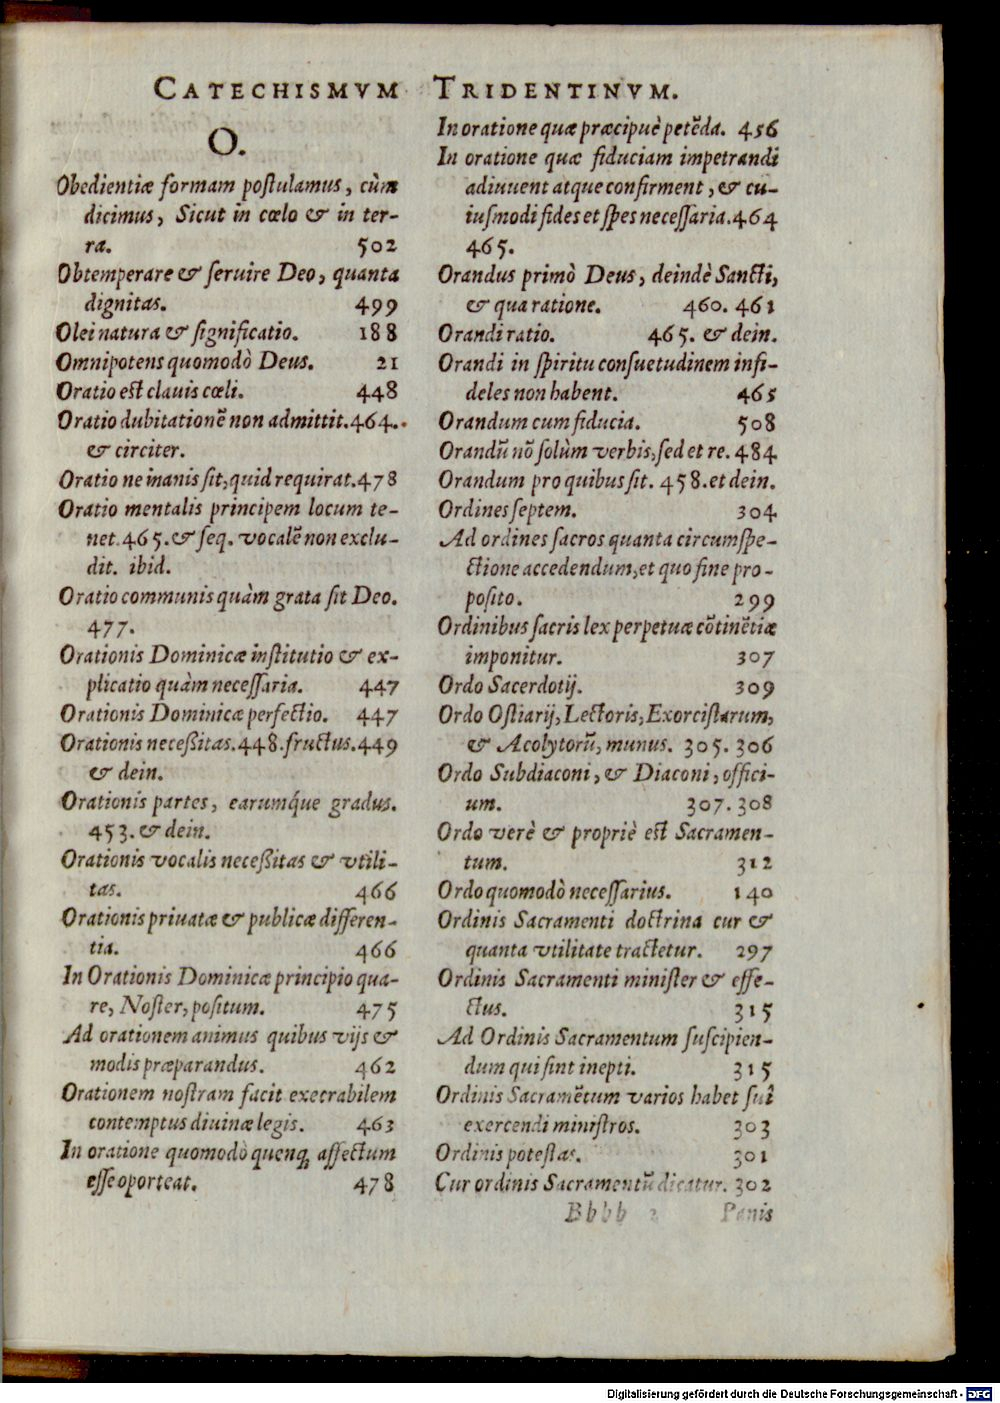 CATECHISMVM TRIDENTINVM.
O.
Obedientiæ formam postulamus, cùm
dicimus, Sicut in cœlo & in ter-
ra. 502
Obtemperare & seruire Deo, quanta
dignitas. 499
Olei natura & significatio. 188
Omnipotens quomodò Deus. 21
Oratio est clauis cœli. 448
Oratio dubitationẽ non admittit. 464.
& circiter.
Oratio ne inanis sit, quid requirat. 478
Oratio mentalis principem locum te-
net. 465. & seq. vocalẽ non exclu-
dit. ibid.
Oratio communis quàm grata sit Deo.
477.
Orationis Dominicæ institutio & ex-
plicatio quàm necessaria. 447
Orationis Dominicæ perfectio. 447
Orationis neceßitas. 448. fructus. 449
& dein.
Orationis partes, earumq́ue gradus.
453. & dein.
Orationis vocalis neceßitas & vtili-
tas. 466
Orationis priuatæ & publicæ differen-
tia. 466
In Orationis Dominicæ principio qua-
re, Noster, positum. 475
Ad orationem animus quibus vijs &
modis præparandus. 462
Orationem nostram facit execrabilem
contemptus diuinæ legis. 463
In oratione quomodò quenq; affectum
esse oporteat. 478
In oratione quæ præcipuè petẽda. 456
In oratione quæ fiduciam impetrandi
adiuuent atque confirment, & cu-
iusmodi fides et spes necessaria. 464
465.
Orandus primò Deus, deindè Sancti,
& qua ratione. 460. 461
Orandi ratio. 465. & dein.
Orandi in spiritu consuetudinem infi-
deles non habent. 465
Orandum cum fiducia. 508
Orandũ nõ solùm verbis, sed et re. 484
Orandum pro quibus sit. 458. et dein.
Ordines septem. 304
Ad ordines sacros quanta circumspe-
ctione accedendum, et quo fine pro-
posito. 299
Ordinibus sacris lex perpetuæ cõtinẽtiæ
imponitur. 307
Ordo Sacerdotij. 309
Ordo Ostiarij, Lectoris, Exorcistarum,
& Acolytorũ, munus. 305. 306
Ordo Subdiaconi, & Diaconi, offici-
um. 307. 308
Ordo verè & propriè est Sacramen-
tum. 312
Ordo quomodò necessarius. 140
Ordinis Sacramenti doctrina cur &
quanta vtilitate tractetur. 297
Ordinis Sacramenti minister & effe-
ctus. 315
Ad Ordinis Sacramentum suscipien-
dum qui sint inepti. 315
Ordinis Sacramẽtum varios habet suî
exercendi ministros. 303
Ordinis potestas. 301
Cur ordinis Sacramentũ dicatur. 302
Bbbb 2 Panis
Digitalisierung gefördert durch die Deutsche Forschungsgemeinschaft - DFG